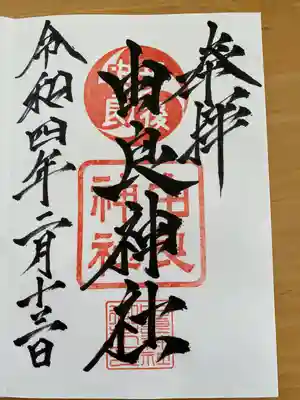 奉拝
丹後
由良
由良神社
由良
神社
令和四年二月十三日